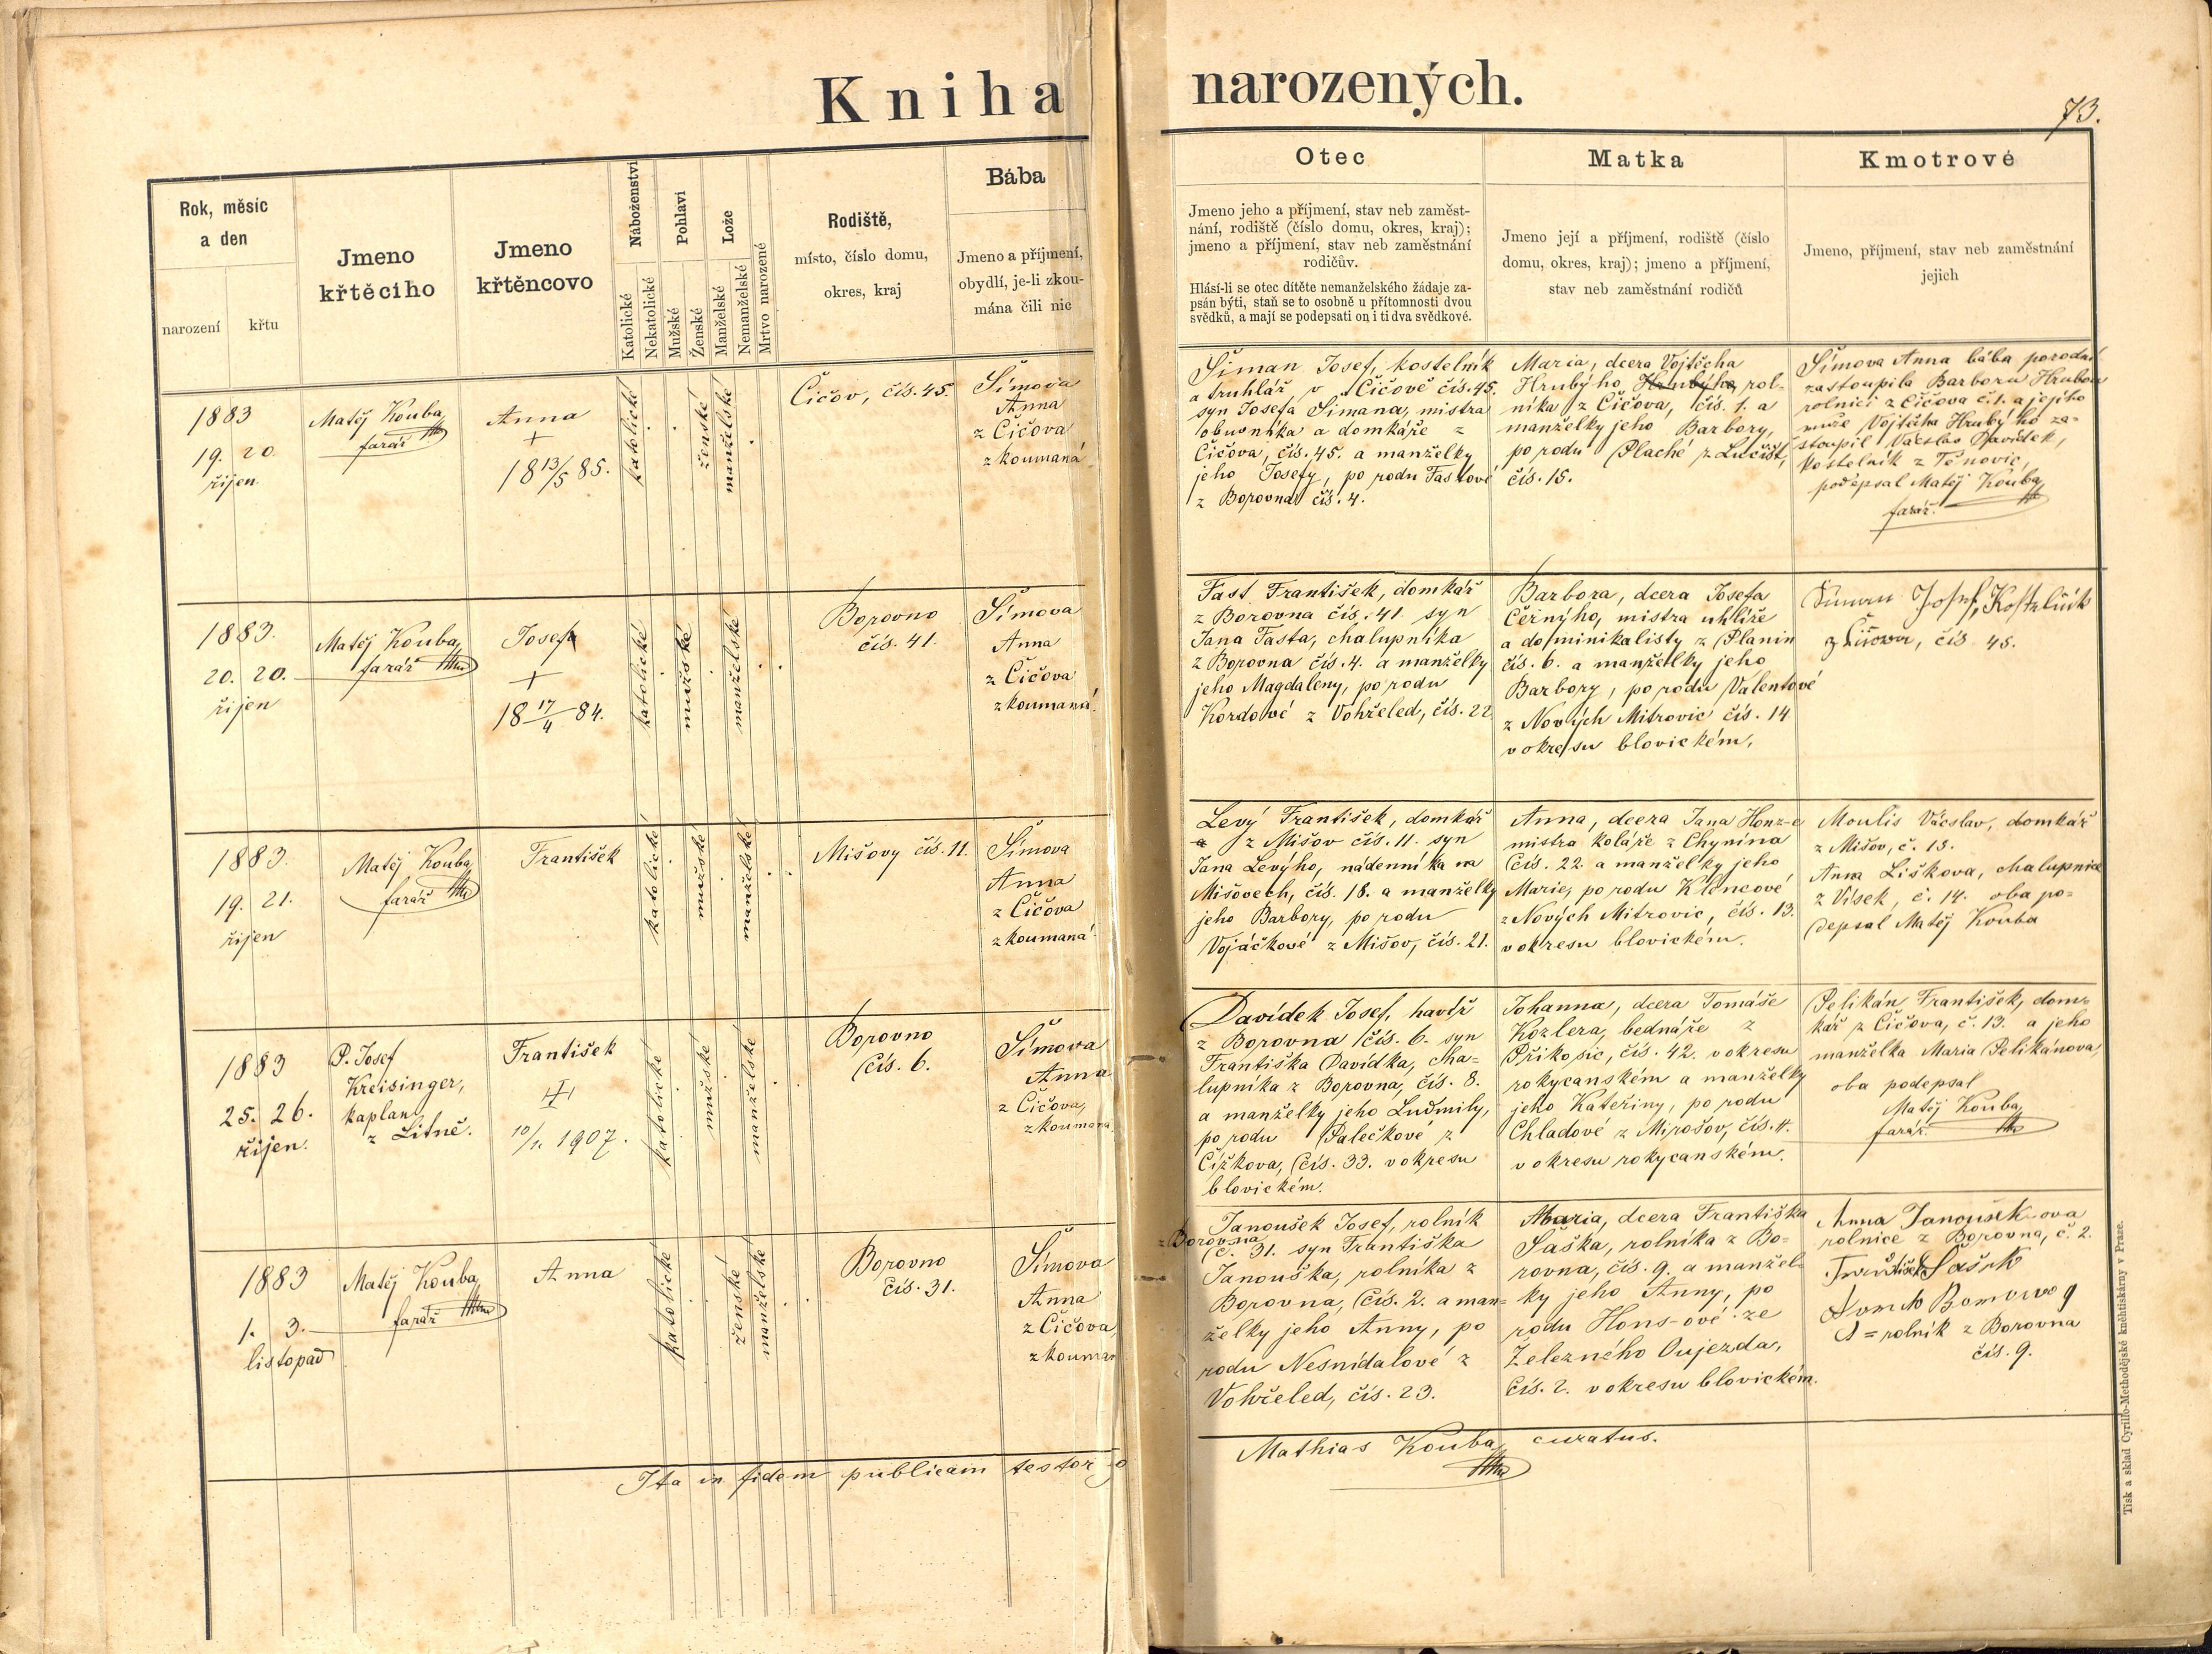 Kniha narozených.
73.
Rok, měsíc
a den
narození
křtu
Jmeno
křtěcího
Jmeno
křtěncovo
Náboženství
Katolické
Nekatolické
Pohlaví
Mužské
Ženské
Lože
Manželské
Nemanželské
Mrtvo narozené
Rodiště,
místo, číslo domu,
okres, kraj
Bába
Jmeno a příjmení,
obydlí, je-li zkou-
mána čili nic
Otec
Jmeno jeho a příjmení, stav neb zaměst-
nání, rodiště (číslo domu, okres, kraj);
jmeno a příjmení, stav neb zaměstnání
rodičův.
Hlásí-li se otec dítěte nemanželského žádaje za-
psán býti, staň se to osobně u přítomnosti dvou
svědků, a mají se podepsati on i ti dva svědkové.
Matka
Jmeno její a příjmení, rodiště (číslo
domu, okres, kraj); jmeno a příjmení,
stav neb zaměstnání rodičů
Kmotrové
Jmeno, příjmení, stav neb zaměstnání
jejich
1883
19. 20.
říjen
Matěj Kouba
farář
Anna
+
18 13/5 85.
katolické
ženské
manželské
Čičov, čís. 45.
Šímova
Anna
z Čičova
zkoumaná
Šiman Josef, kostelník
a truhlář v Čičově čís. 45.
syn Josefa Šimana, mistra
obuvníka a domkáře z
Čičova, čís. 45. a manželky
jeho Josefy, po rodu Fastové
z Borovna čís. 4.
Maria, dcera Vojtěcha
Hrubýho, Hrubýho, rol-
níka z Čičova, čís. 1. a
manželky jeho Barbory,
po rodu Plaché z Lučišt,
čís. 15.
Šímova Anna bába porodní
zastoupila Barboru Hrubou
rolnici z Čičova č. 1. a jejího
muže Vojtěcha Hrubýho za-
stoupil Václav Davídek,
kostelník z Těnovic,
podepsal Matěj Kouba
farář.
1883.
20. 20.
říjen
Matěj Kouba
farář
Josef
+
18 17/4 84.
katolické
mužské
manželské
Borovno
čís. 41.
Šímova
Anna
z Čičova
zkoumaná.
Fast František, domkář
z Borovna čís. 41. syn
Jana Fasta, chalupníka
z Borovna čís. 4. a manželky
jeho Magdaleny, po rodu
Kordové z Vohřeled, čís. 22
Barbora, dcera Josefa
Černýho, mistra uhlíře
a dominikalisty z Planin
čís. 6. a manželky jeho
Barbory, po rodu Valentové
z Nových Mitrovic čís. 14
v okresu blovickém.
Šiman Josef, Kostelník
z Čičova, čís 45.
1883.
19. 21.
říjen
Matěj Kouba
farář
František
katolické
mužské
manželské
Mišovy čís. 11.
Šímova
Anna
z Čičova
zkoumaná
Levý František, domkář
z Mišov čís. 11. syn
Jana Levýho, nádenníka na
Mišovech, čís. 18. a manželky
jeho Barbory, po rodu
Vojáčkové z Mišov, čís. 21.
Anna, dcera Jana Honz-e
mistra koláře z Chynína
čís. 22. a manželky jeho
Marie, po rodu Klencové
z Nových Mitrovic, čís. 13.
v okresu blovickém.
Moulis Václav, domkář
z Mišov, č. 13.
Anna Liškova, chalupnice
z Vísek, č. 14. oba po-
depsal Matěj Kouba
1883
25. 26.
říjen.
P. Josef
Kreisinger,
kaplan
z Litně.
František
10/1. 1907.
katolické
mužské
manželské
Borovno
čís. 6.
Šímova
Anna
z Čičova,
zkoumaná
Davídek Josef, havíř
z Borovna čís. 6. syn
Františka Davídka, cha-
lupníka z Borovna, čís. 8.
a manželky jeho Ludmily,
po rodu Palečkové z
Čížkova, čís. 33. v okresu
blovickém.
Johanna, dcera Tomáše
Kozlera, bednáře z
Příkosic, čís. 42. v okresu
rokycanském a manželky
jeho Kateřiny, po rodu
Chladové z Mirošov, čís. 4.
v okresu rokycanském.
Pelikán František, dom-
kář z Čičova, č. 13. a jeho
manželka Maria Pelikánova,
oba podepsal
Matěj Kouba
farář.
1883
1. 3.
listopad
Matěj Kouba
farář
Anna
katolické
ženské
manželské
Borovno
čís. 31.
Šímova
Anna
z Čičova,
zkouman
Janoušek Josef, rolník
z Borovna
č. 31. syn Františka
Janouška, rolníka z
Borovna, čís. 2. a man-
želky jeho Anny, po
rodu Nesnídalové z
Vohřeled, čís. 23.
Maria, dcera Františka
Saška, rolníka z Bo-
rovna, čís. 9. a manžel-
ky jeho Anny, po
rodu Hons-ové ze
Železného Oujezda,
čís. 2. v okresu blovickém.
Anna Janoušek-ova
rolnice z Borovna, č. 2.
František Sašek
rolník z Borovna
čís. 9.
Ita in fidem publicam testor
Mathias Kouba curatus.
Tisk a sklad Cyrillo-Methodějské knihtiskárny v Praze.